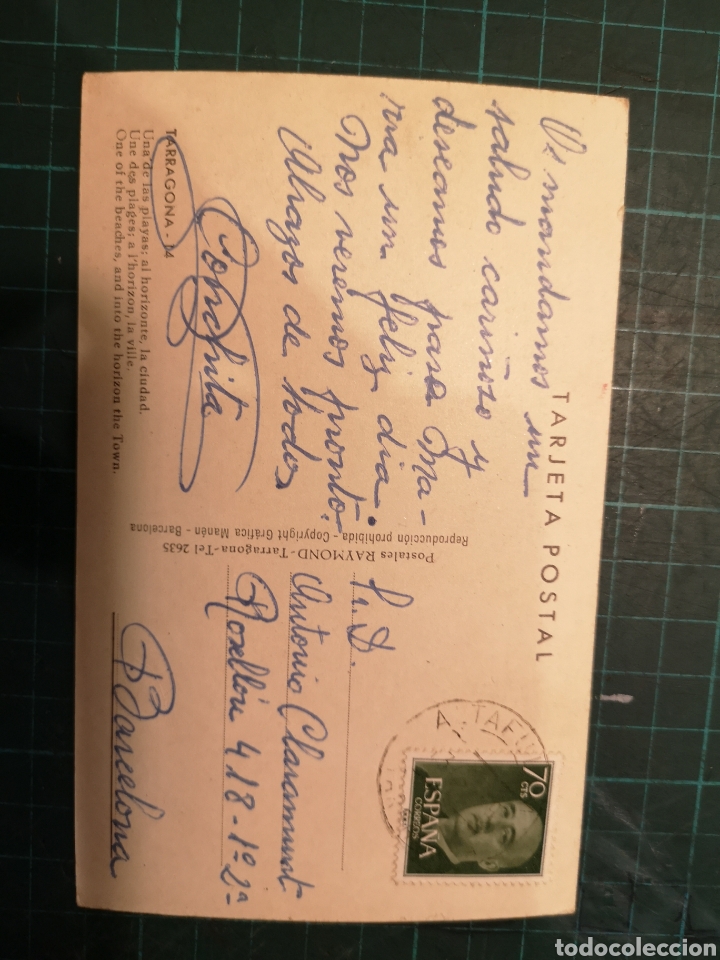 TARJETA POSTAL
Os mandamos un
saludo cariñoso y
deseamos para Ma-
ria un feliz dia.
Nos veremos pronto.
Abrazos de todos
Conchita
TARRAGONA - 14
Una de las playas; al horizonte, la ciudad.
Une des plages; a l'horizon, la ville.
One of the beaches, and into the horizon the Town.
Postales RAYMOND - Tarragona - Tel 2635
Reproducción prohibida - Copyright Gráfica Manén - Barcelona
Sr. D.
Antonio Claramunt
Rosellón 418-1º-2ª
Barcelona
70
CTS
ESPAÑA
CORREOS
todocoleccion